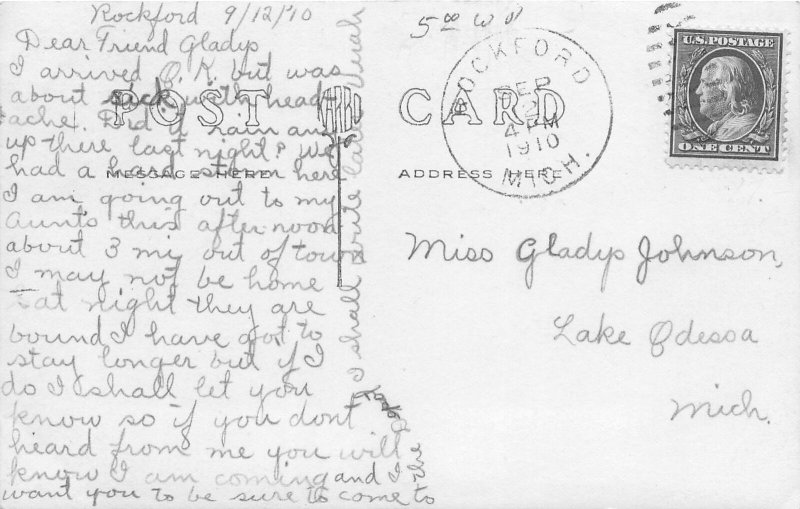 Rockford 9/12/10
Dear Friend Gladys
I arrived O.K. but was
about sick with head-
ache. Did it rain any
up there last night? We
had a hard storm here
I am going out to my
Aunts this afternoon
about 3 mi out of town
I may not be home
at night they are
bound I have got to
stay longer but if I
do I shall let you
know so if you dont
heard from me you will
know I am coming and I
want you to be sure to come to
the
I shall write later
POST CARD
MESSAGE HERE
ADDRESS HERE
5 00 W
ROCKFORD
SEP
12
4 PM
1910
MICH.
U.S. POSTAGE
ONE CENT
Miss Gladys Johnson,
Lake Odessa
Mich.